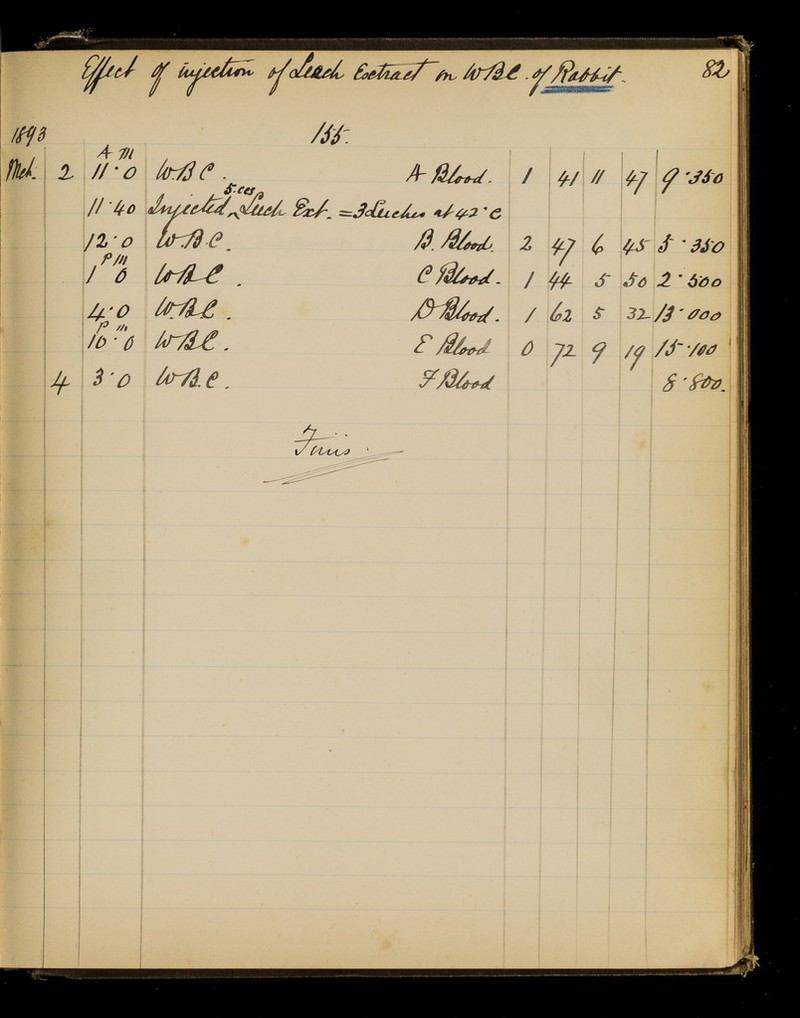 Effect of injection of Leech Extract on WBC. of Rabbit. 82
1893 155.
A M
Mch. 2 11·0 W.B C. A Blood. 1 41 11 47 9·350
5.ccs
11·40 Injected ^ Leech Ext. = 3 Leeches at 42°C
12·0 W.B.C. B. Blood. 2 47 6 45 5·350
P M
1 0 WBC. C Blood. 1 44 5 50 2·500
4·0 W.B.C. D Blood. 1 62 5 32 13·000
P m
10·0 WBC. E Blood 0 72 9 19 15·100
4 3·0 W.B.C. F Blood 8·800.
Finis.